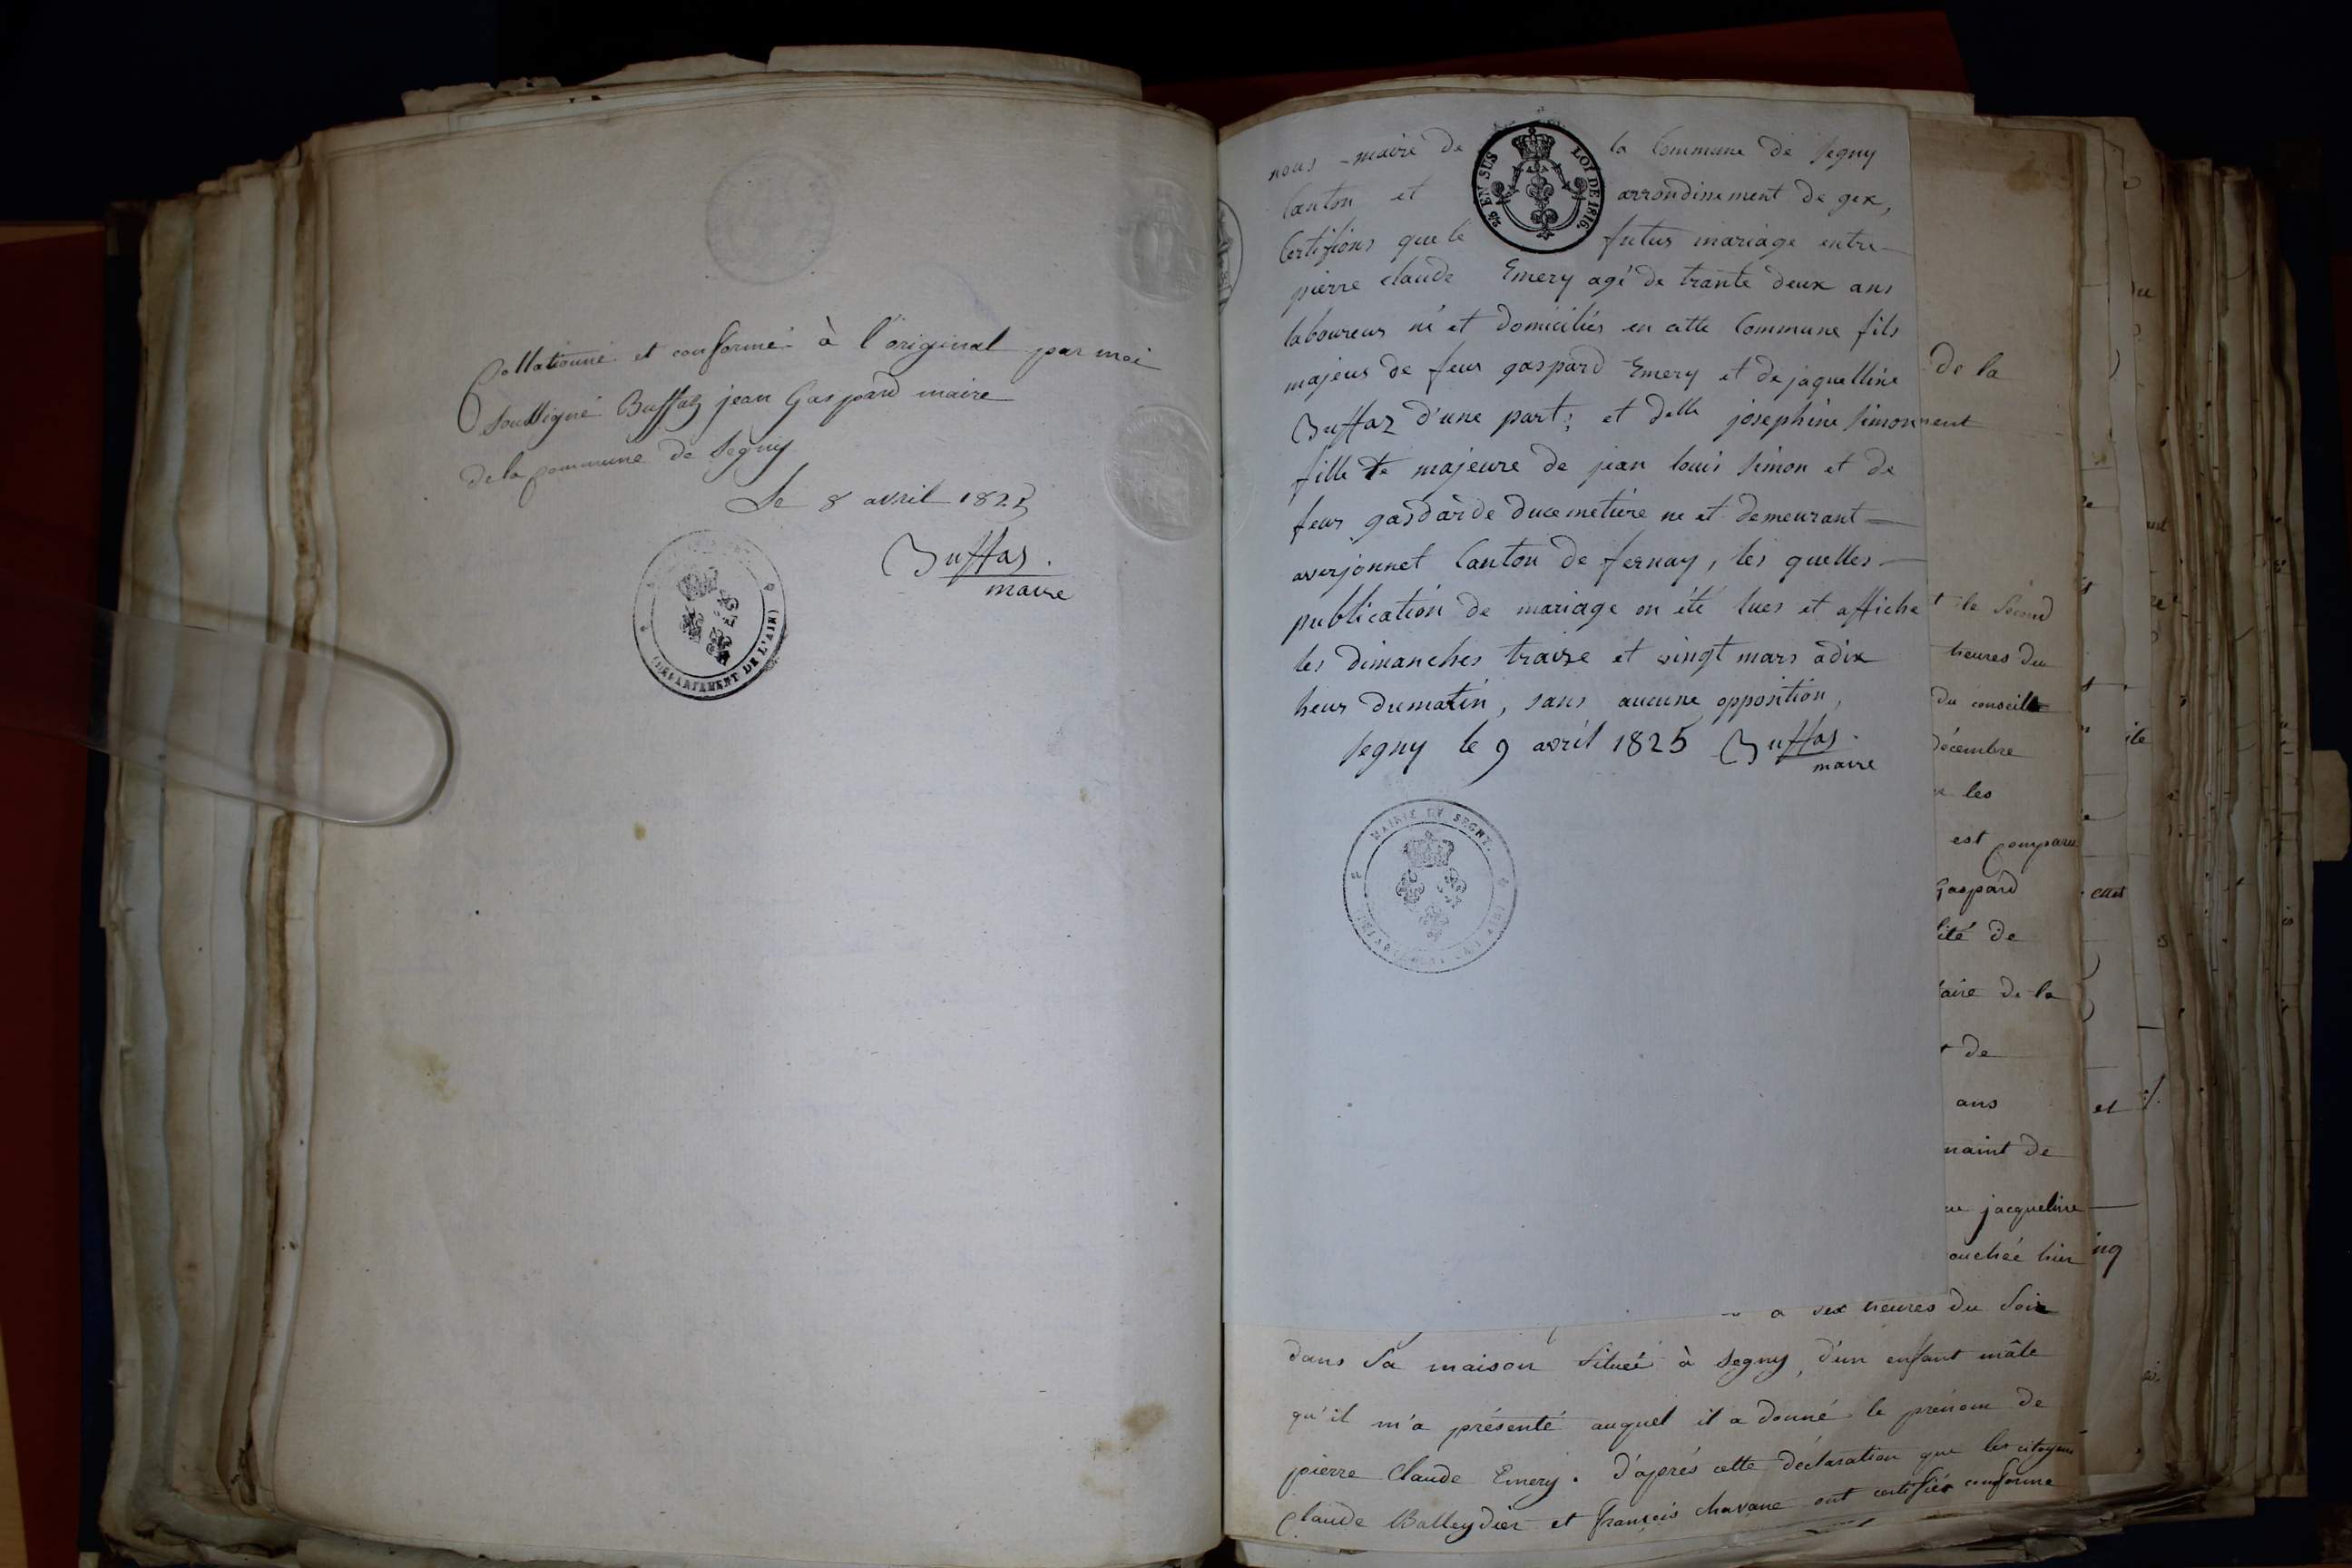 Collationné et conforme à l'original par moi
soussigné Buffaz jean Gaspard maire
de la commune de Segny
Le 8 avril 1825
Buffaz.
maire
DÉPARTEMENT DE L'AIN
nous maire de la Commune de Segny
EN SUS LOI DE 1816.
Canton et arrondissement de gex,
Certifions que le futur mariage entre
pierre claude Emery agé de trante deux ans
laboureur né et domiciliés en cette Commune fils
majeur de feur gaspard Emery et de jaquelline
Buffaz d'une part; et delle josephine simon
fille majeure de jean louis simon et de
feur gasdarde ducemetiére ne et demeurant
aversonnet Canton de fernay, les quelles
publication de mariage on été lues et affiche
les dimanches traize et vingt mars àdix
heur dumatin, sans aucune opposition,
segny le 9 avril 1825 Buffaz.
maire
MAIRIE DE SEGNY.
de la
ment
t le Second
heures du
du conseil
décembre
les
est comparu
Gaspard
lité de
aire de la
de
ans
maint de
jacqueline
ouchée hier
a six heures du Soir
dans Sa maison Situeé à Segny, d'un enfant mâle
qu'il m'a présenté auquel il a donné le prénom de
pierre Claude Emery. D'après cette déclaration que les citoyens
Claude Balleydier et françois chavane ont certifiér conforme